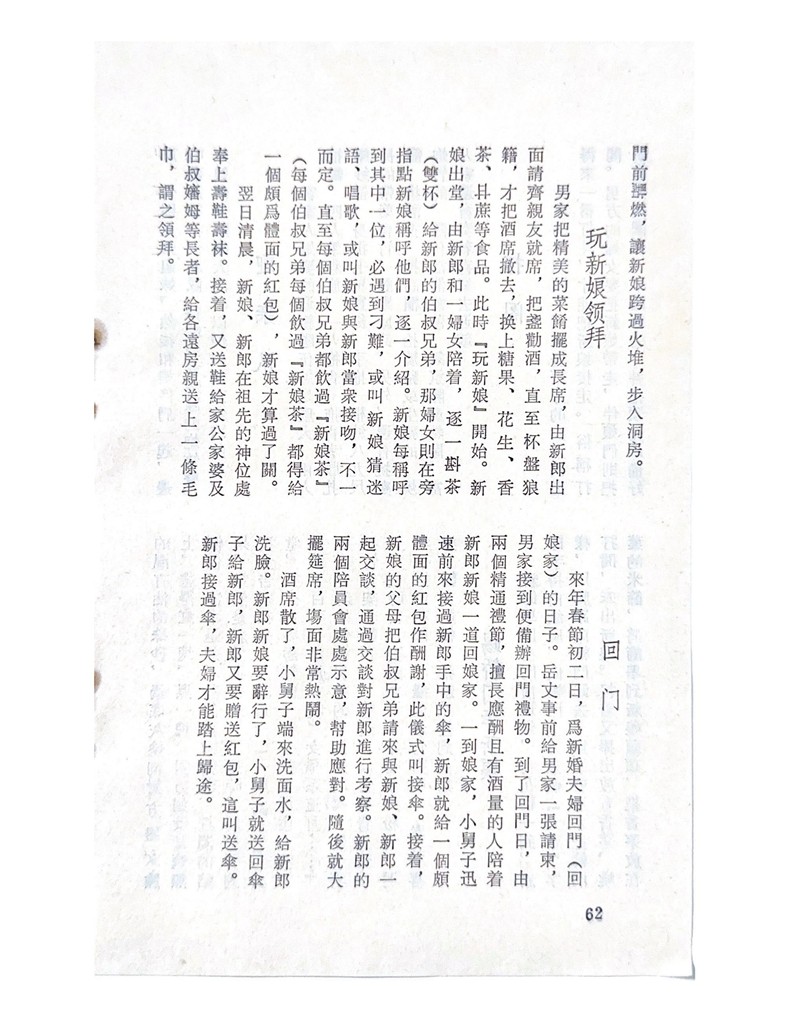 門前點燃，讓新娘跨過火堆，步入洞房。
玩新娘领拜
男家把精美的菜餚擺成長席，由新郎出
面請齊親友就席，把盞勸酒，直至杯盤狼
籍，才把酒席撤去，换上糖果、花生、香
茶、甘蔗等食品。此時『玩新娘』開始。新
娘出堂，由新郎和一婦女陪着，逐一斟茶
（雙杯）給新郎的伯叔兄弟，那婦女則在旁
指點新娘稱呼他們，逐一介紹。新娘每稱呼
到其中一位，必遇到刁難，或叫新娘猜迷
語、唱歌，或叫新娘與新郎當衆接吻，不一
而定。直至每個伯叔兄弟都飲過『新娘茶』
（每個伯叔兄弟每個飲過『新娘茶』都得給
一個頗爲體面的紅包），新娘才算過了關。
翌日清晨，新娘、新郎在祖先的神位處
奉上壽鞋壽袜。接着，又送鞋給家公家婆及
伯叔嬸姆等長者，給各遠房親送上一條毛
巾，謂之領拜。
回门
來年春節初二日，爲新婚夫婦回門（回
娘家）的日子。岳丈事前給男家一張請柬，
男家接到便備辦回門禮物。到了回門日，由
兩個精通禮節，擅長應酬且有酒量的人陪着
新郎新娘一道回娘家。一到娘家，小舅子迅
速前來接過新郎手中的傘，新郎就給一個頗
體面的紅包作酬謝，此儀式叫接傘。接着，
新娘的父母把伯叔兄弟請來與新娘、新郎一
起交談，通過交談對新郎進行考察。新郎的
兩個陪員會處處示意，幫助應對。隨後就大
擺筵席，塲面非常熱鬧。
酒席散了，小舅子端來洗面水，給新郎
洗臉。新郎新娘要辭行了，小舅子就送回傘
子給新郎，新郎又要贈送紅包，這叫送傘。
新郎接過傘，夫婦才能踏上歸途。
62